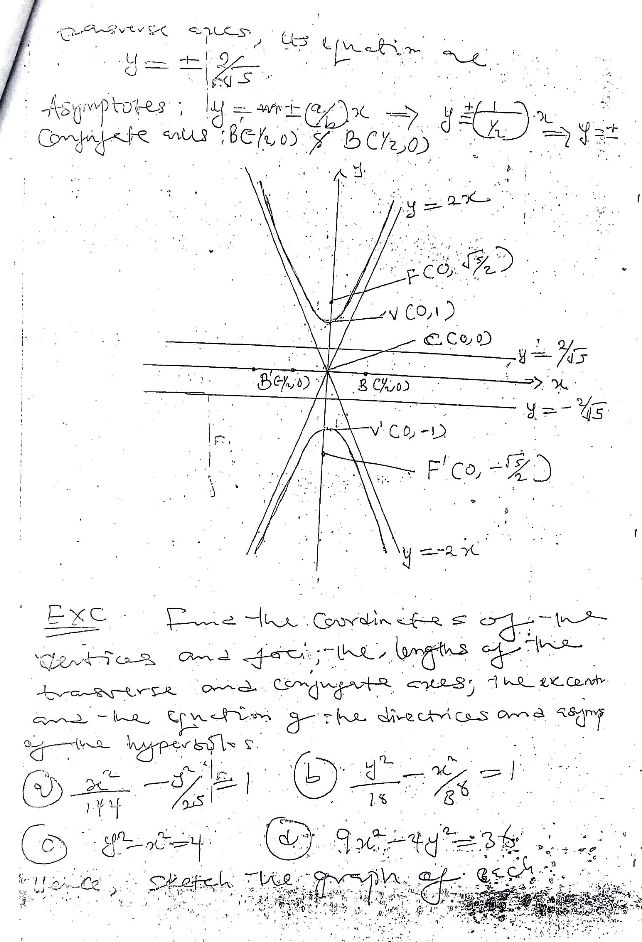 transverse axes, its equation are
y = ± 2/√5
Asymptotes: y = ±(a/b)x ⇒ y = ±(1/½)x ⇒ y = ±
Conjugate axes: B'(-½,0) & B(½,0)
y
y = 2x
F(0, √5/2)
V(0,1)
C(0,0)
y = 2/√5
B'(-½,0) B(½,0) x
y = -2/√5
V'(0,-1)
F'(0, -√5/2)
y = -2x
EXC Find the Coordinates of the
vertices and foci; the lengths of the
transverse and conjugate axes; the excentr
and the equation of the directrices and asymp
of the hyperbolas.
(a) x²/144 - y²/25 = 1 (b) y²/18 - x²/ = 1
(c) y² - x² = 4 (d) 9x² - 4y² = 36
Hence, sketch the graph of each